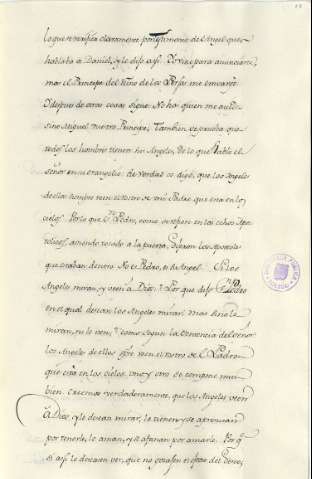 lo que se verifica claramente por testimonio del Angel que
hablaba a Daniel, y le dijo asi. Yo vine para anunciarte,
mas el Principe del Reino de los Persas me
Y despues de otras cosas sigue. No ha quien me aiude
sino Miguel vuestro Principe. Tambien se prueba que
todos los hombres tienen su Angeles, de lo que habla el
Señor en el evangelio: de Verdad os digo, que los Angeles
de los hombres ven el rostro de mi Padre que está en los
cielos. Por lo que Sn. Pedro, como se refiere en los echos Apos
tolicos, aviendo tocado a la puerta, dijeron los Apostoles
que estaban dentro. No es Pedro, es su Angel. Si los
Angeles miran, y ven a Dios. Por que dijo Sn. Pedro
en el qual desean los Angeles mirar. mas si no lo
miran, ni lo ven, como segun la sentencia del Señor
los Angeles de ellos ven el rostro de el Padre
que está en los cielos. uno y otro se compone mui
bien. Creemos verdaderamente, que los Angeles ven
a Dios, y le desean mirar, le tienen, y se
por tenerle, lo aman, y se afanan por amarle. Por q
si asi le desean ver, que no